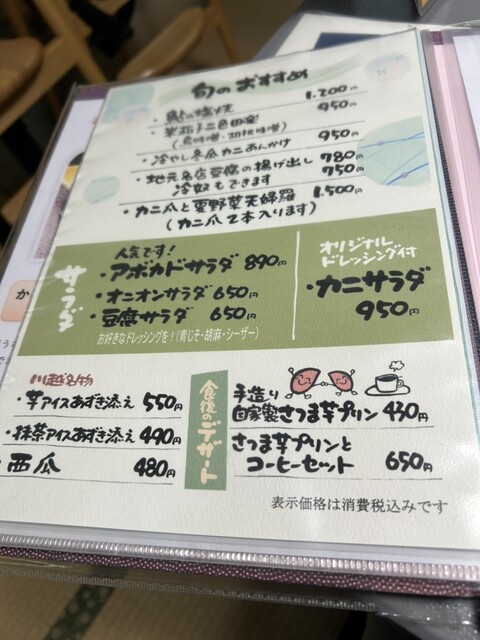 旬のおすすめ
・鮎の塩焼 1,200円
・米茄子二色田楽 950円
(鳥味噌・胡桃味噌)
・冷やし冬瓜カニあんかけ 950円
・地元名店豆腐の揚げ出し 780円
冷奴もできます 750円
・カニ爪と夏野菜天婦羅 1,500円
(カニ爪2本入ります)
サラダ
人気です!
・アボカドサラダ 890円
・オニオンサラダ 650円
・豆腐サラダ 650円
お好きなドレッシングを!(青じそ・胡麻・シーザー)
オリジナル
ドレッシング付
・カニサラダ
950円
川越名物
・芋アイスあずき添え 550円
・抹茶アイスあずき添え 490円
西瓜 480円
食後のデザート
手造り
自家製さつま芋プリン 430円
さつま芋プリンと
コーヒーセット 650円
表示価格は消費税込みです